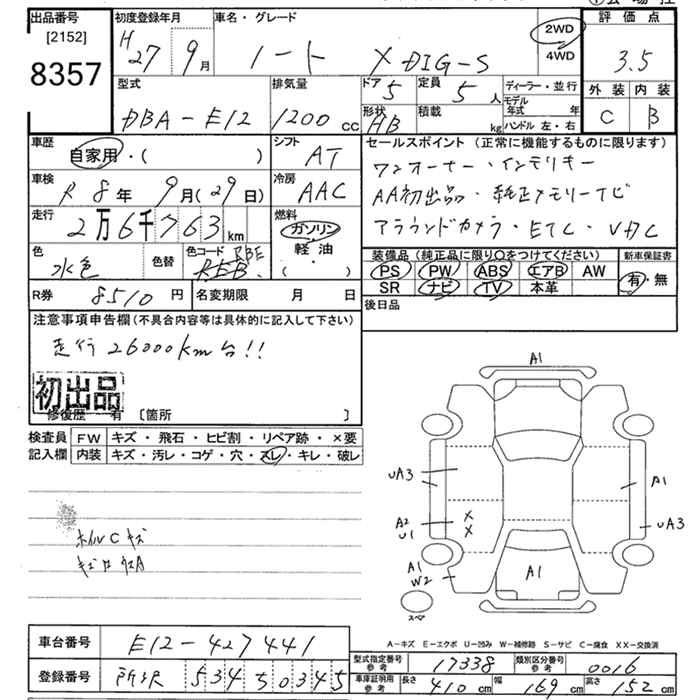 出品番号 初度登録年月 車名・グレード 2WD 評価点
[2152] H 27 9月 ノート X DIG-S 4WD 3.5
8357 型式 排気量 ドア 5 定員 5人 ディーラー・並行 外装 内装
DBA-E12 1200cc 形状 HB 積載 kg モデル年式 年 ハンドル 左・右 C B
車歴 自家用・( ) シフト AT セールスポイント (正常に機能するものに限ります)
車検 R 8年 9月(29日) 冷房 AAC ワンオーナー・インテリキー
走行 2万6千763km 燃料 ガソリン・軽油・( ) AA初出品・純正メモリーナビ
アラウンドカメラ・ETC・VDC
色 水色 色替 色コード RBE 装備品 (純正品に限り○をつけてください) 新車保証書
PS PW ABS エアB AW 有・無
SR ナビ TV 本革
R券 8510円 名変期限 月 日 後日品
注意事項申告欄 (不具合内容等は具体的に記入して下さい)
走行26000km台!!
初出品
修復歴 有 [箇所 ]
検査員 FW キズ・飛石・ヒビ割・リペア跡・×要
記入欄 内装 キズ・汚レ・コゲ・穴・スレ・キレ・破レ
A1
UA3 A1
A2 X
U1 X UA3
A1
W2 A1
スペア
ホイルC キズ
A-キズ E-エクボ U-凹み W-補修跡 S-サビ C-腐食 XX-交換済
車台番号 E12-427441 型式指定番号 参考 17338 類別区分番号 参考 0016
登録番号 所沢 534 す 0345 車庫証明用 参考 長さ 410cm 幅 169cm 高さ 152cm